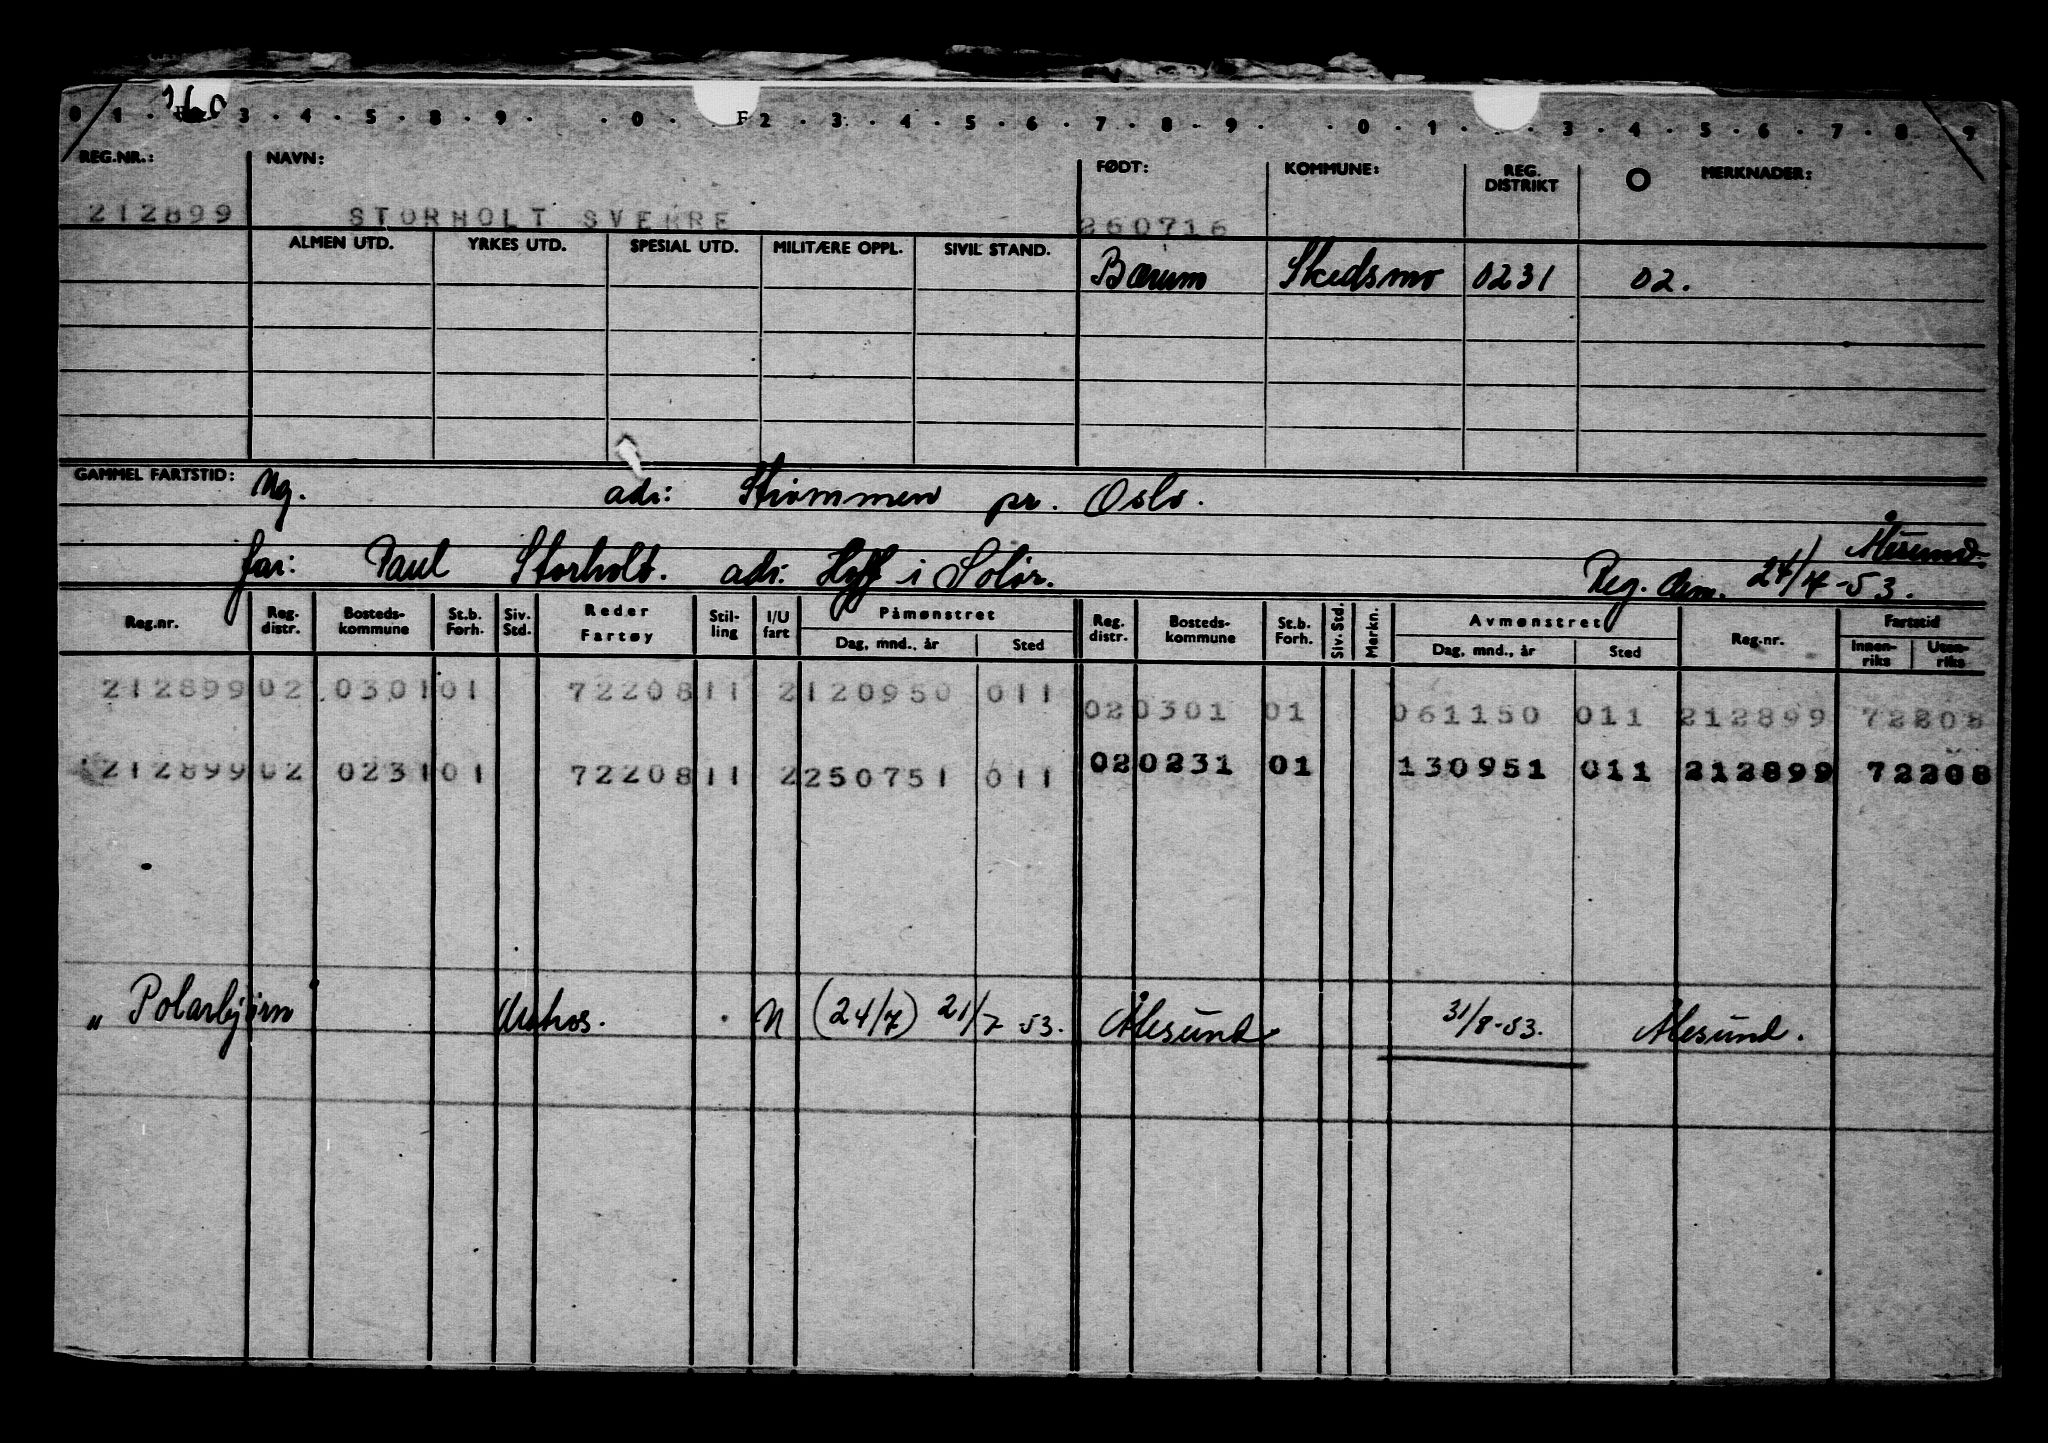 0 1 · 160 3 · 4 · 5 · 8 · 9 · · 0 · F2 · 3 · 4 · 5 · 6 · 7 · 8 · 9 · · 0 · 1 · · 3 · 4 · 5 · 6 · 7 · 8 · 9
REG.NR.: NAVN: FØDT: KOMMUNE: REG. DISTRIKT O MERKNADER:
212899 STORHOLT SVERRE 260716
ALMEN UTD. YRKES UTD. SPESIAL UTD. MILITÆRE OPPL. SIVIL STAND.
Bærum Skedsmo 0231 02.
GAMMEL FARTSTID: Ug. adr: Strømmen pr. Oslo.
Ålesund.
far: Paul Storholt. adr: i Solør. Reg. Anm. 24/7-53.
Reg.nr. Reg. distr. Bosteds-kommune St.b. Forh. Siv. Std. Reder Fartøy Stil-ling I/U fart Påmønstret Dag, mnd., år Sted Reg. distr. Bosteds-kommune St.b. Forh. Siv. Std. Merkn. Avmønstret Dag, mnd., år Sted Reg.nr. Fartstid Innen-riks Uten-riks
212899 02 0301 01 72208 11 2 120950 011 02 0301 01 061150 011 212899 72208
212899 02 0231 01 72208 11 2 250751 011 02 0231 01 130951 011 212899 72208
„Polarbjørn" Matros. U (24/7) 21/7 53. Ålesund 31/8-53. Ålesund.